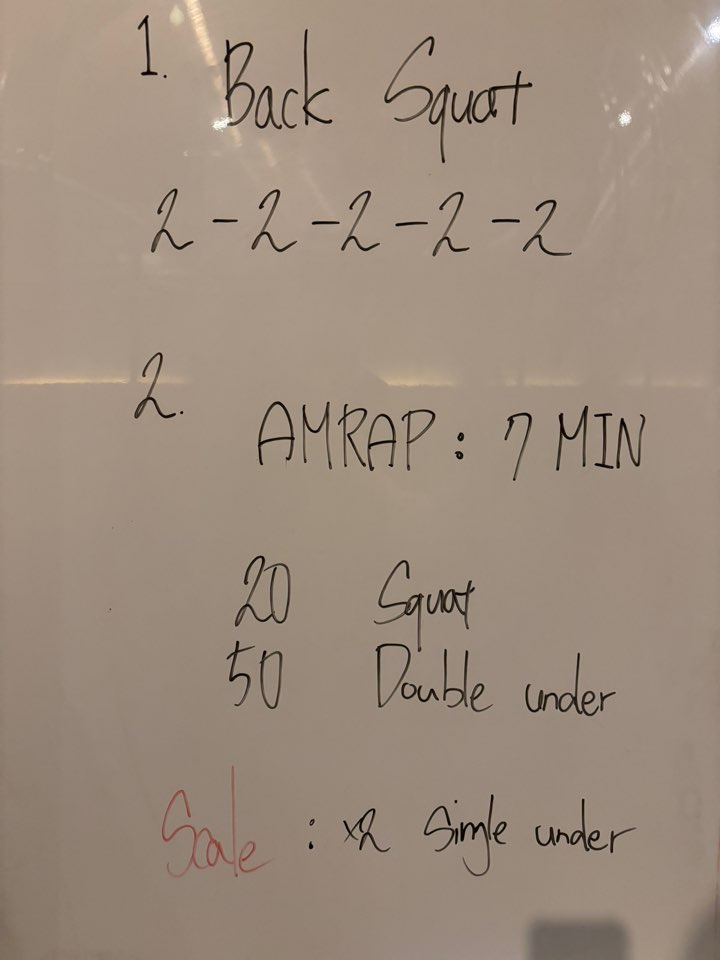 1. Back Squat
2-2-2-2-2
2. AMRAP: 7 MIN
20 Squat
50 Double under
Scale : x2 Single under